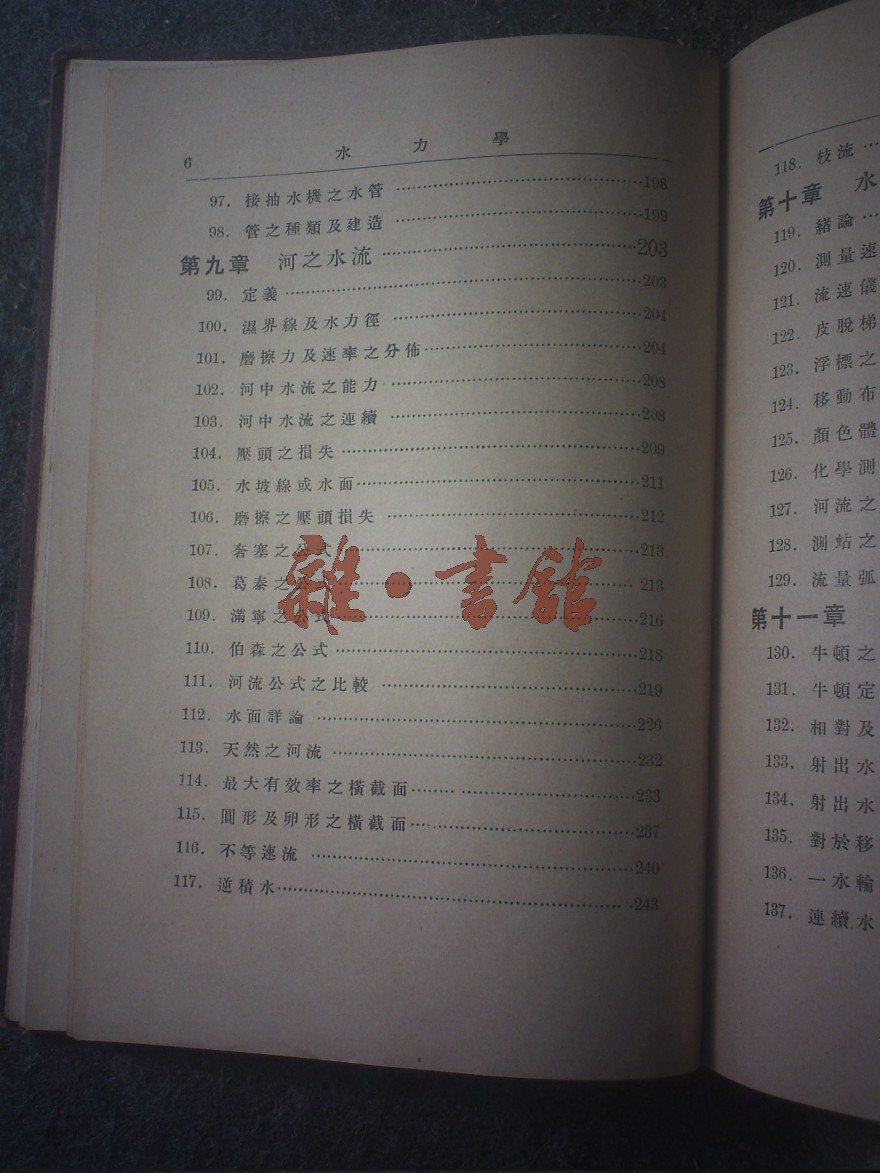 6 水力學
97. 接抽水機之水管 198
98. 管之種類及建造 199
第九章 河之水流 203
99. 定義 203
100. 濕界線及水力徑 204
101. 磨擦力及速率之分佈 204
102. 河中水流之能力 208
103. 河中水流之連續 208
104. 壓頭之損失 209
105. 水坡線或水面 211
106. 磨擦之壓頭損失 212
107. 奢塞之公式 213
108. 葛泰之公式 213
109. 滿寧之公式 216
110. 伯森之公式 218
111. 河流公式之比較 219
112. 水面詳論 226
113. 天然之河流 232
114. 最大有效率之橫截面 233
115. 圓形及卵形之橫截面 237
116. 不等速流 240
117. 逆積水 243
雜·書館
118. 枝流
第十章 水
119. 緒論
120. 測量速
121. 流速儀
122. 皮脫梯
123. 浮標之
124. 移動布
125. 顏色體
126. 化學測
127. 河流之
128. 測站之
129. 流量弧
第十一章
130. 牛頓之
131. 牛頓定
132. 相對及
133. 射出水
134. 射出水
135. 對於移
136. 一水輪
137. 連續水